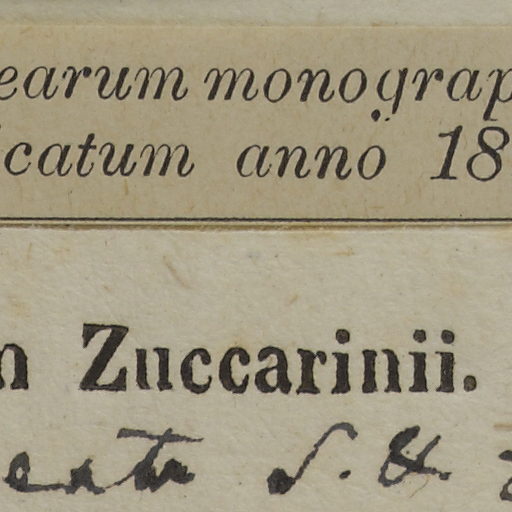 earum monograp
icatum anno 18
n Zuccarinii.
S. &